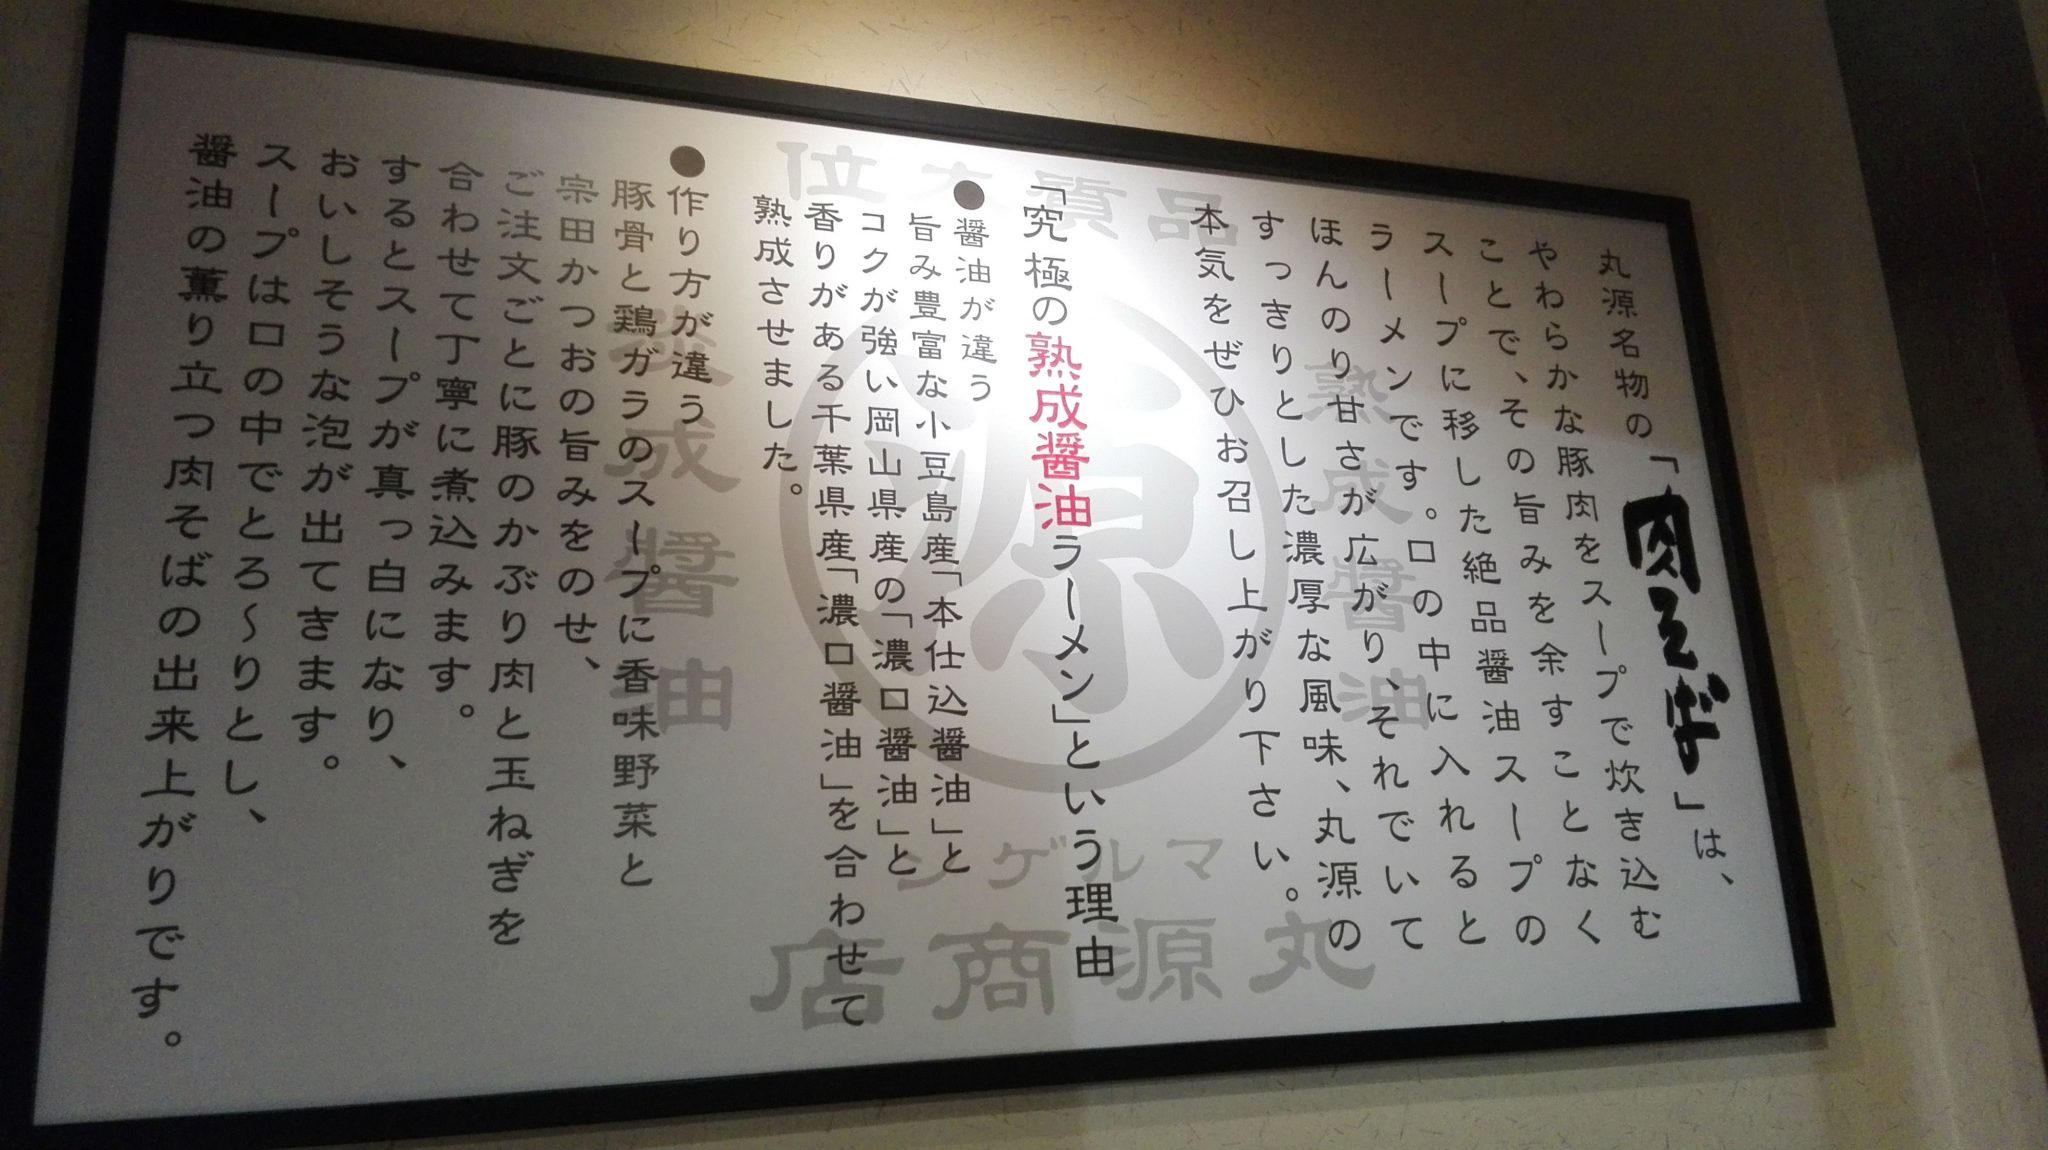 丸源名物の「肉そば」は、
やわらかな豚肉をスープで炊き込む
ことで、その旨みを余すことなく
スープに移した絶品醤油スープの
ラーメンです。口の中に入れると
ほんのり甘さが広がり、それでいて
すっきりとした濃厚な風味、丸源の
本気をぜひお召し上がり下さい。
「究極の熟成醤油ラーメン」という理由
●醤油が違う
旨み豊富な小豆島産「本仕込醤油」と
コクが強い岡山県産の「濃口醤油」と
香りがある千葉県産「濃口醤油」を合わせて
熟成させました。
●作り方が違う
豚骨と鶏ガラのスープに香味野菜と
宗田かつおの旨みをのせ、
ご注文ごとに豚のかぶり肉と玉ねぎを
合わせて丁寧に煮込みます。
するとスープが真っ白になり、
おいしそうな泡が出てきます。
スープは口の中でとろ〜りとし、
醤油の薫り立つ肉そばの出来上がりです。
品質本位
熟成醤油
源
熟成醤油
マルゲン
丸源商店